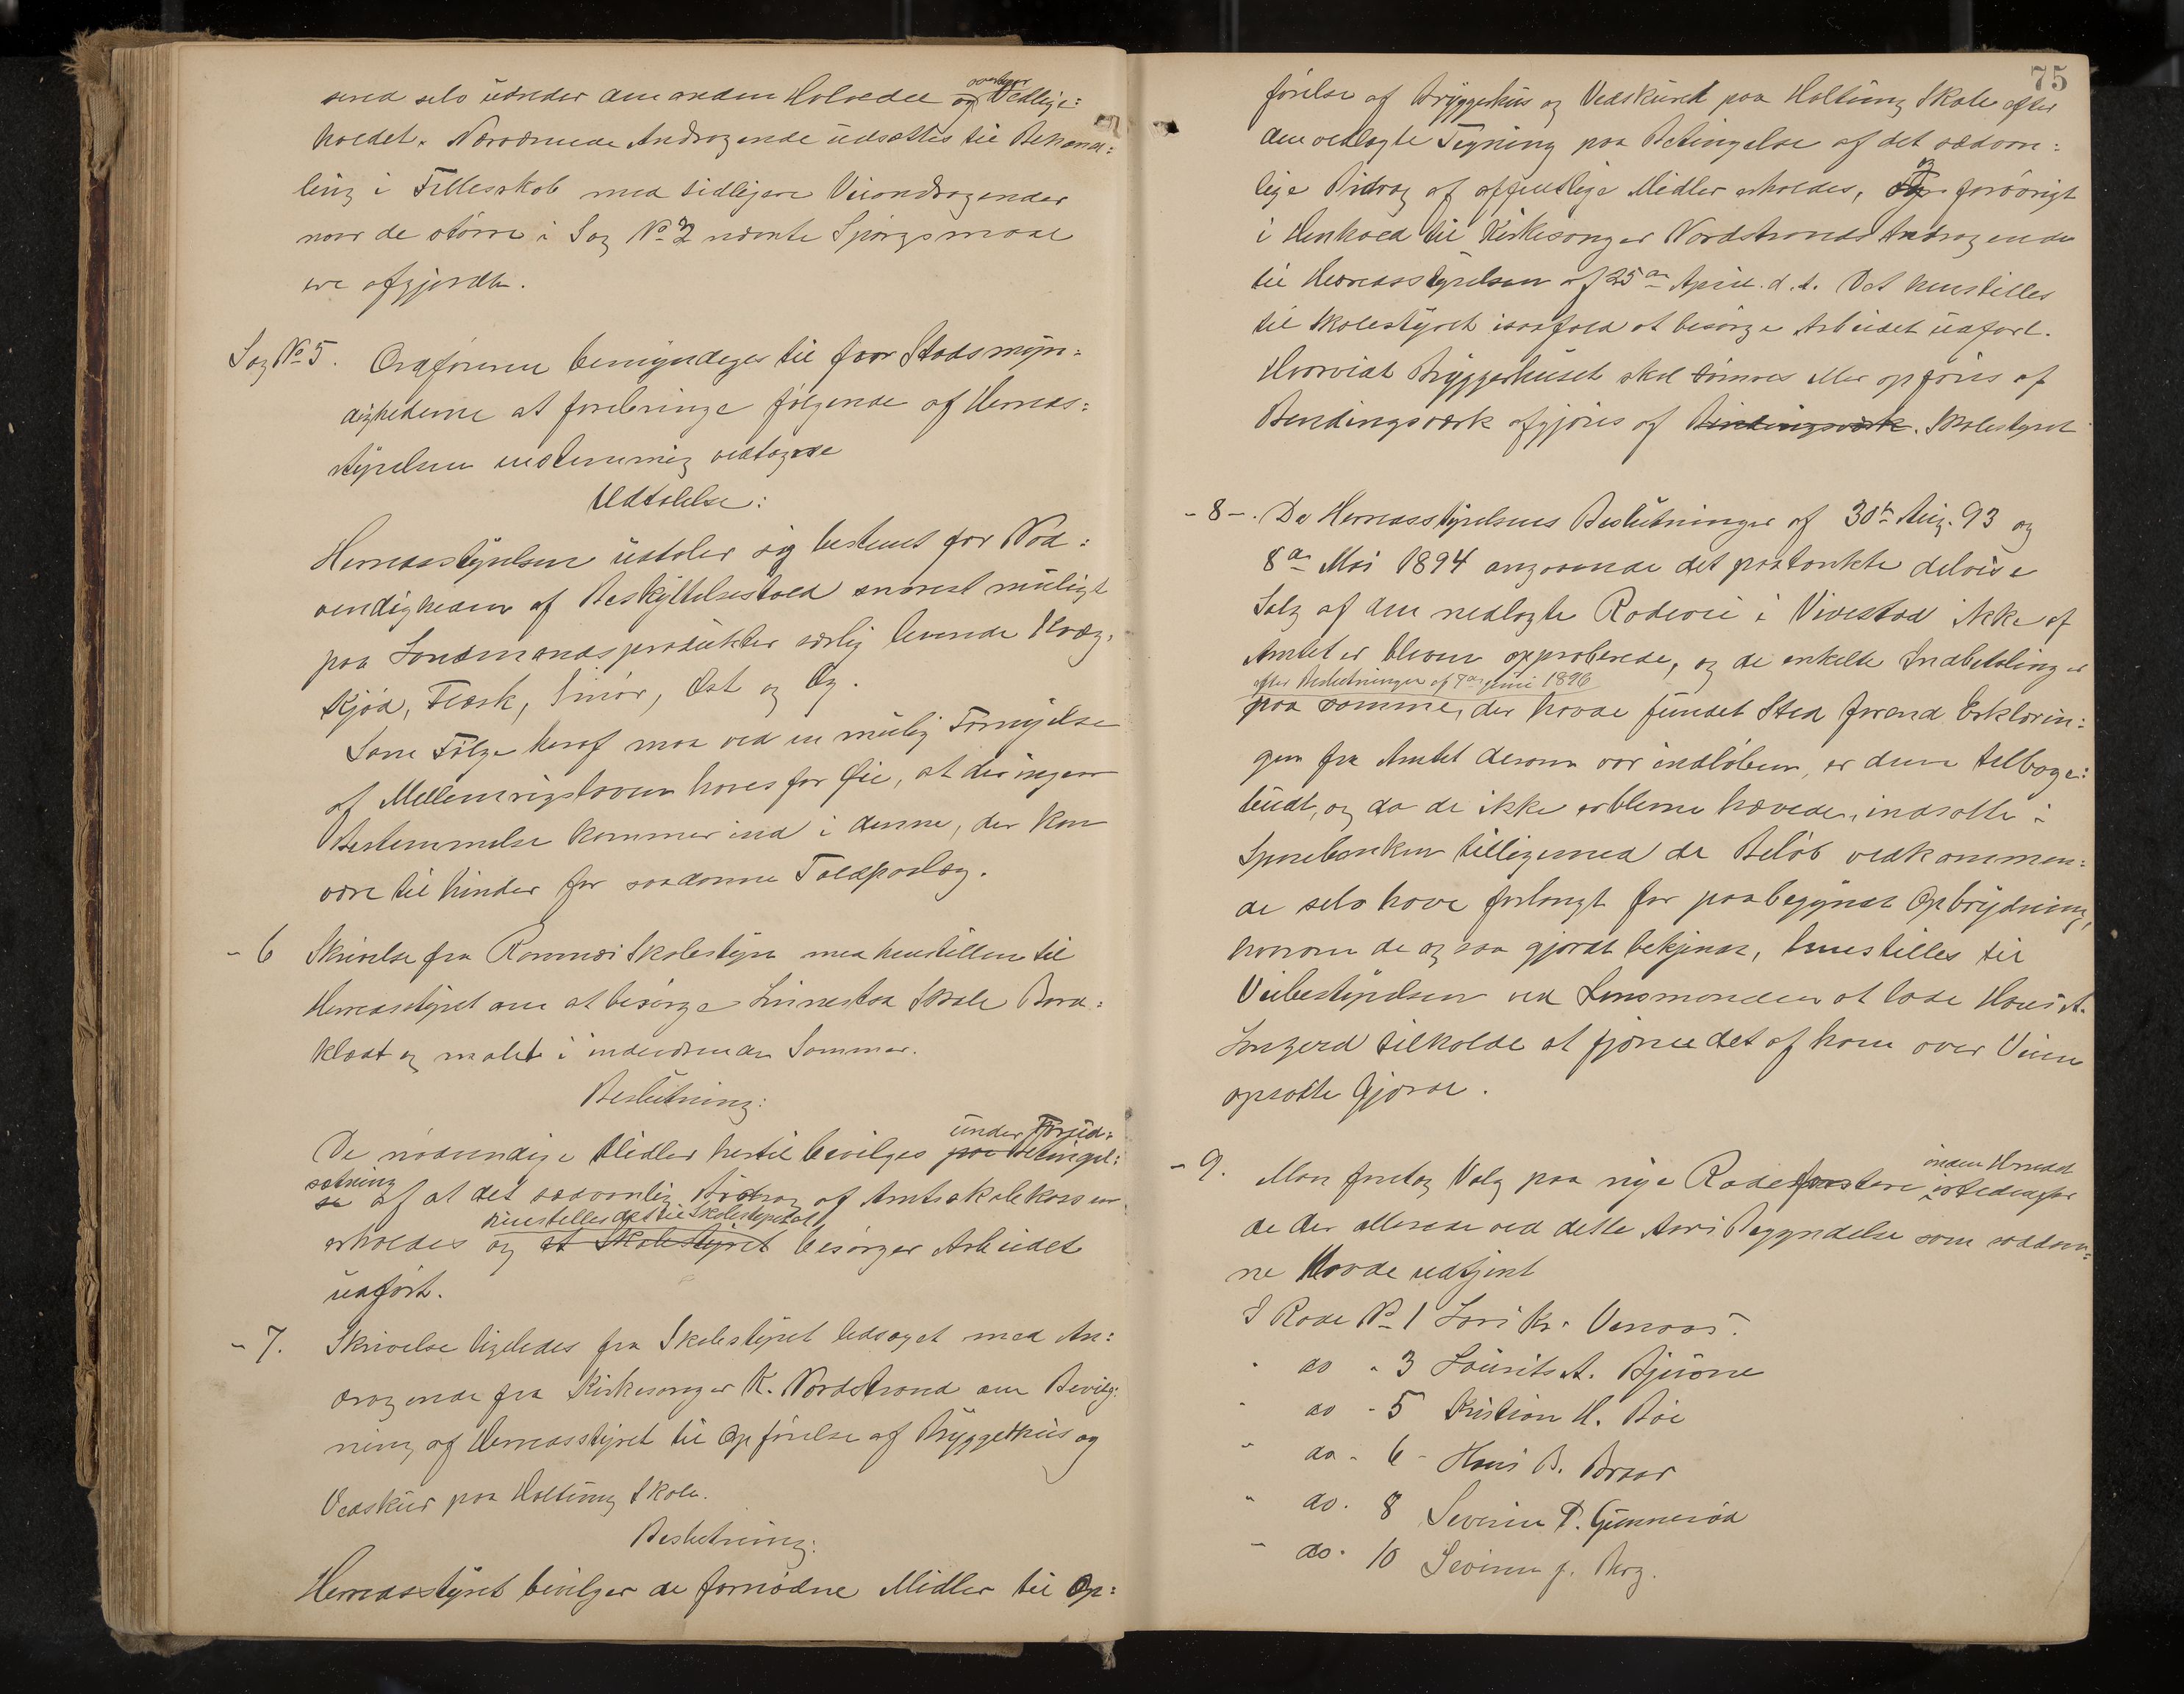 overtager
send selv udreder den anden Halvdel og Vedlige:
holdet. Nærværende Andragende udsættes til Behand:
ling i Fellesskab med tidligere Veiandragender
naar de større i Sag No 2 nævnte Spørgsmaal
ere afgjordte.
Sag No 5. Ordføreren bemyndiges til for Stadsmyn:
dighederne at forebringe følgende af Herreds:
styrelsen enstemmig vedtagne
Udtalelse:
Herredsstyrelsen udtaler sig bestemt for Nød:
vendigheden af Beskyttelsestold snarest muligt
paa Landmandsprodukter særlig levende Kvæg,
Kjød, Flesk, Smør, Ost og Eg.
Som Følge heraf maa ved en mulig Fornyelse
af Mellemrigsloven haves for Øie, at der ingen
Bestemmelse kommer ind i denne, der kan
være til hinder for saadanne Toldpaalæg.
- 6 Skrivelse fra Ramnæs Skolestyre med henstillen til
Herredsstyret om at besørge Linnestad Skole Bord:
klædt og malet i indeværende Sommer.
Beslutning:
under Forud:
De nødvendige Midler hertil bevilges paa Betingel:
sætning
se af at det sædvanlig Bidrag af Amtsskolekassen
henstilles det til Skolestyret at
erholdes og at Skolestyret besørger Arbeidet
udført.
- 7. Skrivelse ligeledes fra Skolestyret ledsaget med An:
dragende fra Kirkesanger K. Nordstrand om Bevilg:
ning af Herredsstyret til Opførelse af Bryggerhus og
Vedskur paa Holtung Skole.
Beslutning:
Herredsstyret bevilger de fornødne Midler til Op:
75
førelse af Bryggerhus og Vedskuret paa Holtung Skole efter
den vedlagte Tegning paa Betingelse af det sædvan:
lige Bidrag af offentlige Midler erholdes, og forøvrigt
i Henhold til Kirkesanger Nordstrands Andragende
til Herredsstyrelsen af 25de April d. A. Det henstilles
til Skolestyret isaafald at besørge Arbeidet udført.
Hvorvidt Bryggerhuset skal tømres eller opføres af
Bindingsværk afgjøres af Bindingsværk. Skolestyret
- 8 -. Da Herredsstyrelsens Beslutninger af 30te Aug. 93 og
8de Mai 1894 angaaende det paatænkte delvise
Salg af den nedlagte Rodevei i Vivestad ikke af
Amtet er bleven approberede, og de enkelte Indbetalinger
efter Beslutninger af 7de Juni 1896
paa samme, der havde fundet Sted forend Erklærin:
gen fra Amtet derom var indløben, er dem tilbage:
budt, og da de ikke er blevne hævede, indsatte i
Sparebanken tilligemed de Beløb vedkommen:
de selv have forlangt for paabegyndt Opbrydning,
hvorom de og saa gjordt bekjendt, henstilles til
Veibestyrelsen ved Lensmanden at lade Hans A.
Langerød tilholde at fjerne det af ham over Veien
opsatte Gjerde.
- 9. Man foretog Valg paa nye Rodeforstere inden Herredet istedenfor
de der allerede ved dette Aars Begyndelse som saadan:
ne havde udtjent
I Rode No 1 Lars Kr. Venaas.
" do " 3 Laurits A. Bjuone
" do - 5 Kristian H. Bøe
" do - 6 - Hans B. Braar
" do. 8 Severin P. Gunnerød
" do. 10 Severin J. Berg.